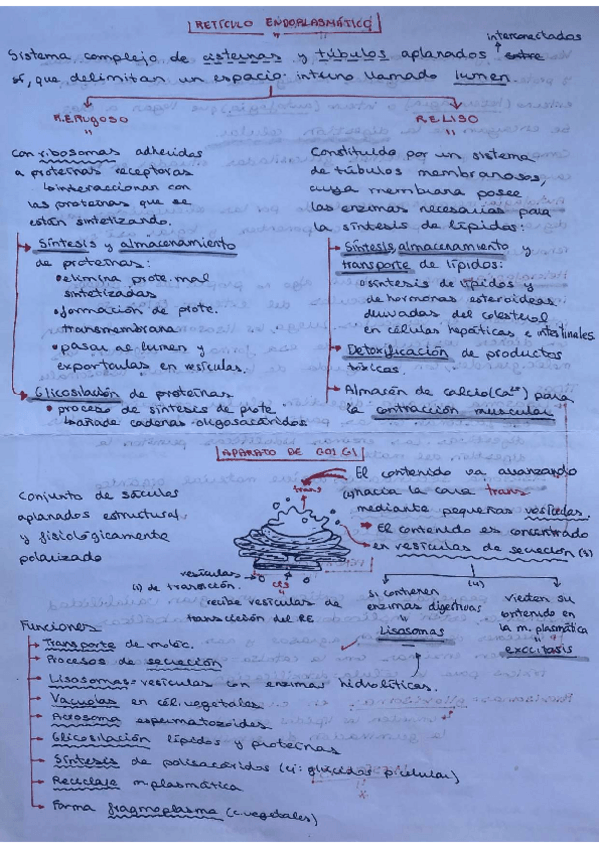 RETÍCULO ENDOPLASMÁTICO
interconectados
Sistema complejo de cisternas y túbulos aplanados entre
sí, que delimitan un espacio interno llamado lumen.
R.E.RUGOSO
R.E.LISO
con ribosomas adheridas
a proteínas receptoras
↳interaccionan con
las proteínas que se
están sintetizando.
→ Síntesis y almacenamiento
de proteínas:
• elimina prote. mal
sintetizadas
• formación de prote.
transmembrana
• pasan al lumen y
exportarlas en vesículas.
→ Glicosilación de proteínas
• proceso de síntesis de prote
↳añade cadenas oligosacáridos
Constituido por un sistema
de túbulos membranosos,
cuya membrana posee
las enzimas necesarias para
la síntesis de lípidos.
→ Síntesis, almacenamiento y
transporte de lípidos:
• síntesis de lípidos y
de hormonas esteroideas
derivadas del colesterol
en células hepáticas e intestinales.
→ Detoxificación de productos
tóxicas.
→ Almacén de calcio (Ca²⁺) para
la contracción muscular
APARATO DE GOLGI
Conjunto de sáculos
aplanados estructural
y fisiológicamente
polarizado
trans
vesículas
(1) de transición.
cis
recibe vesículas de
transición del RE
El contenido va avanzando
hacia la cara trans
mediante pequeñas vesículas.
→ El contenido es concentrado
en vesículas de secreción (3)
(4)
si contienen
enzimas digestivas
Lisosomas
vierten su
contenido en
la m. plasmática
exocitosis
Funciones
→ Transporte de moléc.
→ Procesos de secreción
→ Lisosomas = vesículas con enzimas hidrolíticas.
→ Vacuolas en cél. vegetales
→ Acrosoma espermatozoides
→ Glicosilación lípidos y proteínas
→ Síntesis de polisacáridos (ej: glúcidos p.celular)
→ Reciclaje m.plasmática
→ Forma fragmoplasma (c.vegetales)